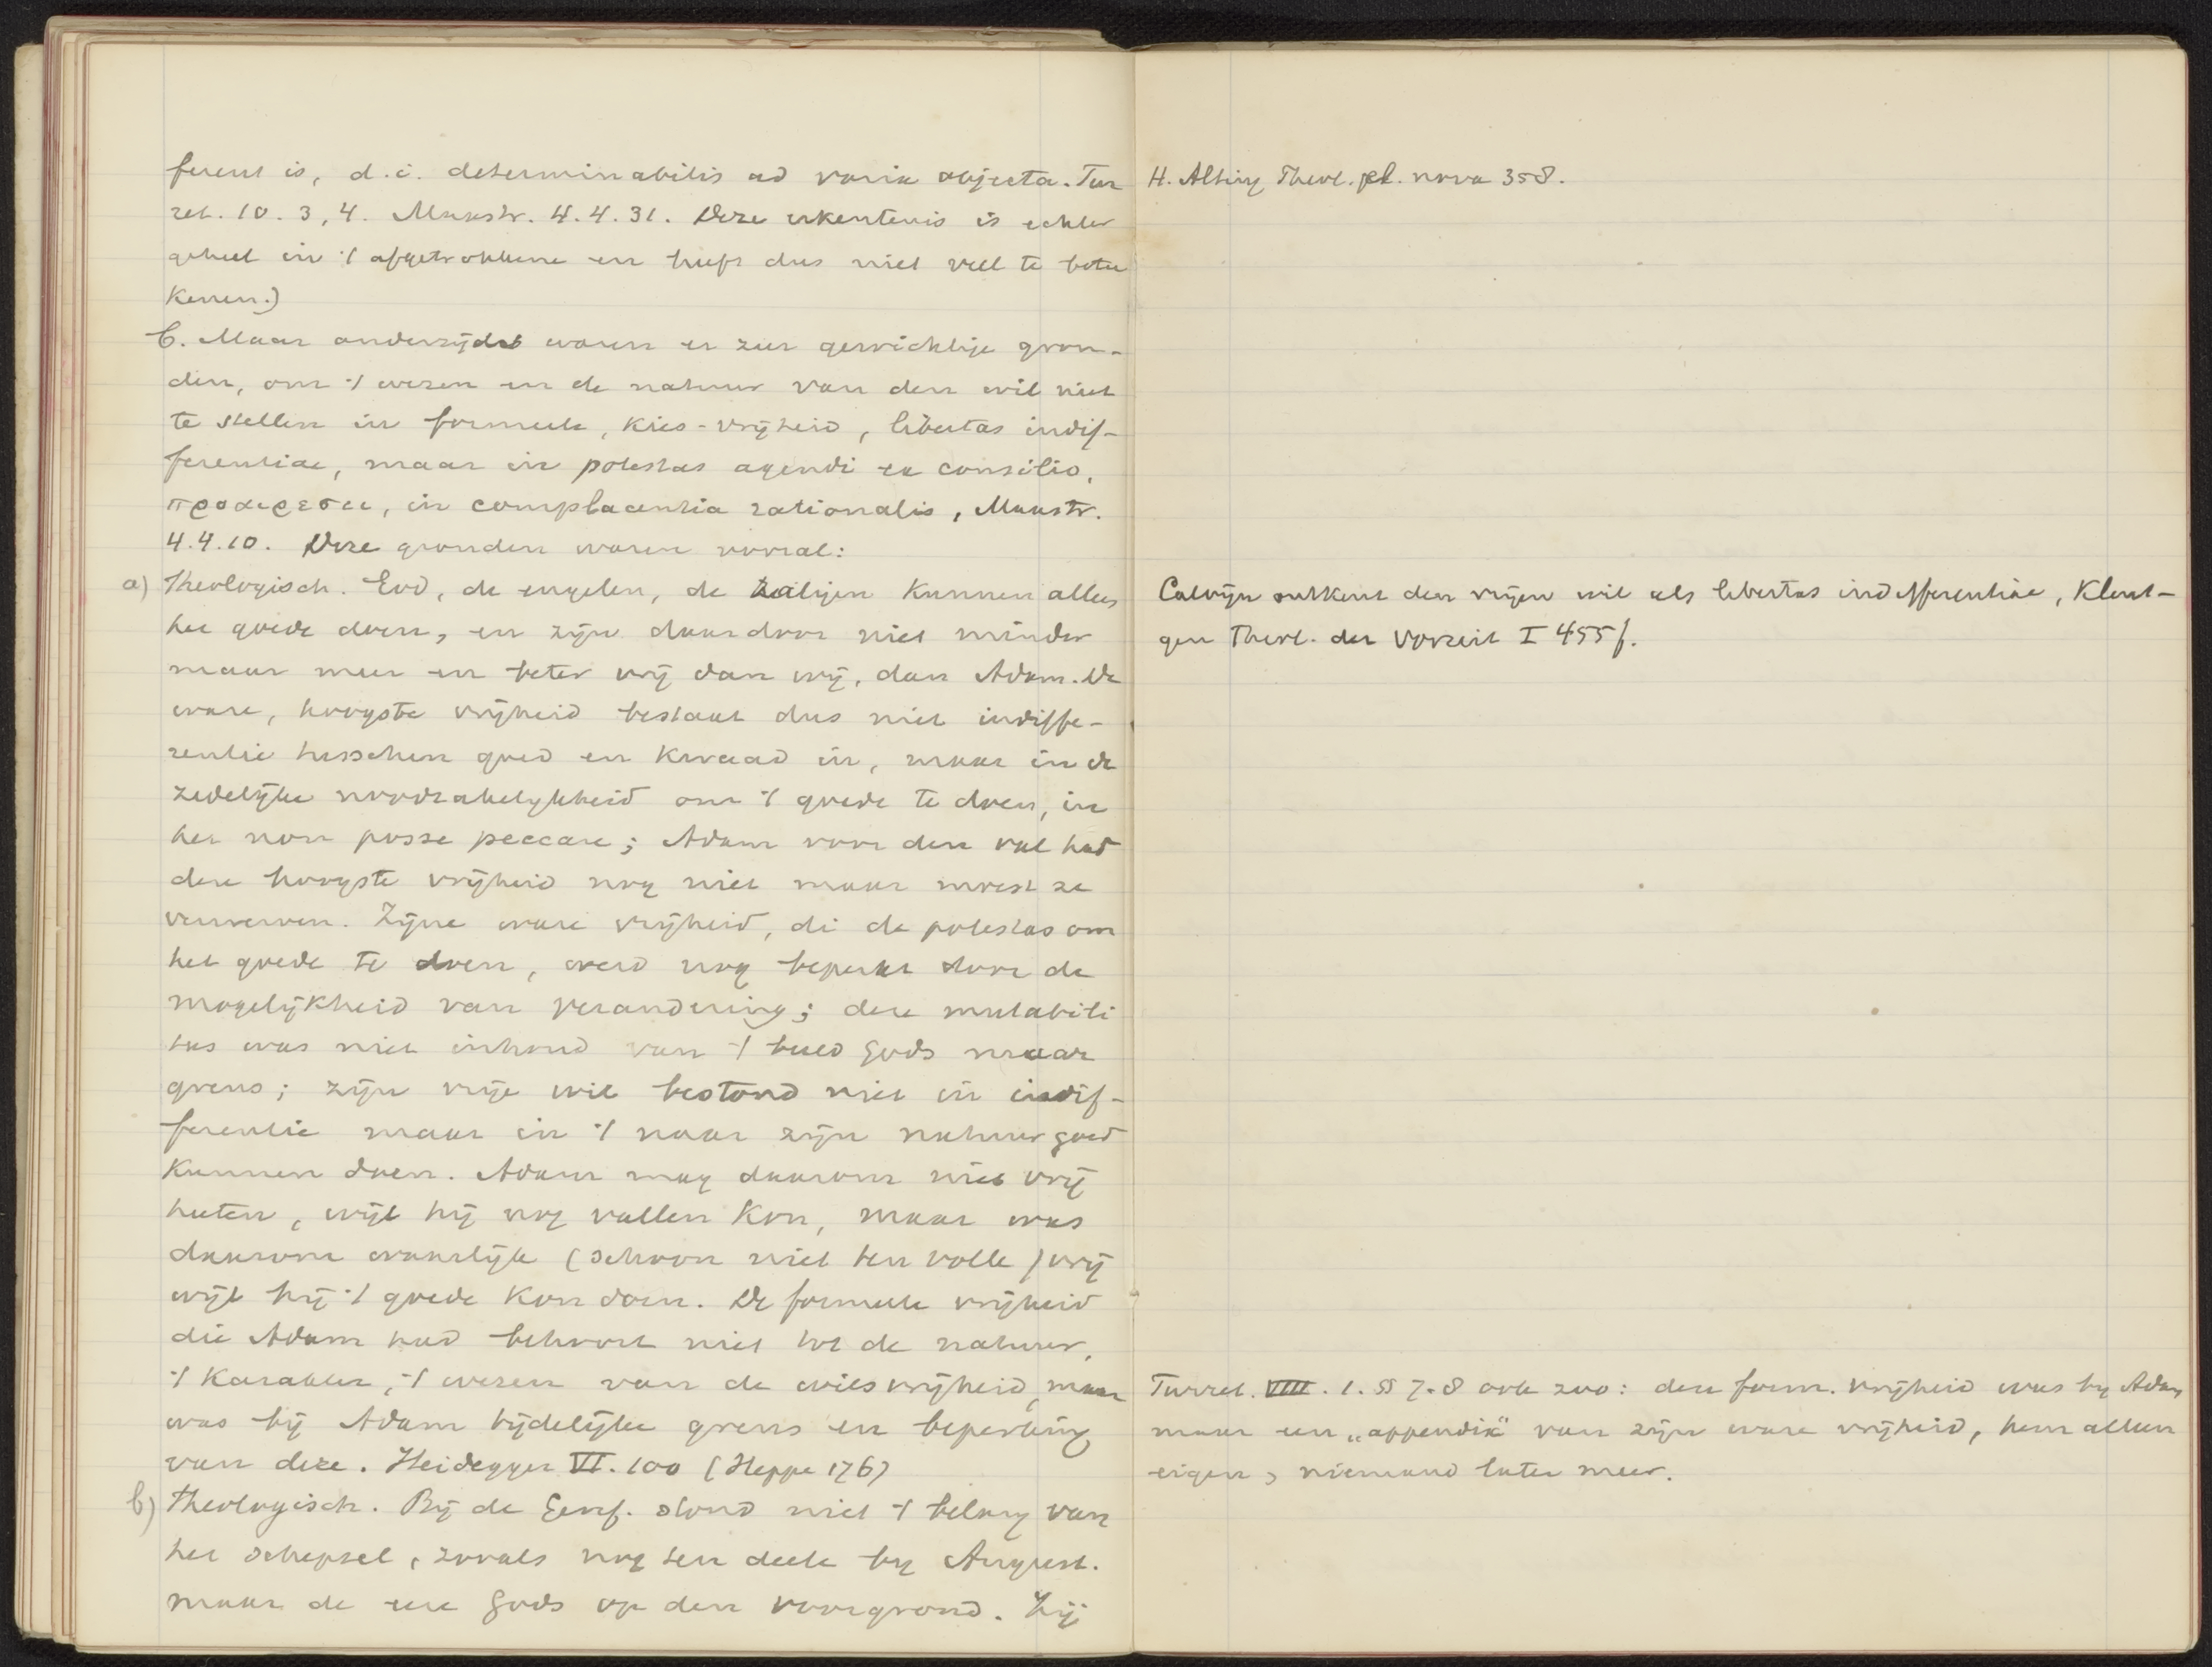 ferent is, d.i. determinabilis ad varia objecta. Tur
ret. 10. 3, 4. Maastr. 4. 4. 31. Deze erkentenis is echter
geheel in 't afgetrokkene en heeft dus niet veel te betee
kenen.)
C. Maar anderzijds waren er zeer gewichtige gron-
den, om 't wezen en de natuur van den wil niet
te stellen in formeele, kies-vrijheid, libertas indif-
ferentiae, maar in potestas agendi ex consilio,
προαιρεσει, in complacentia rationalis, Maastr.
4.4.10. Deze gronden waren vooral:
a) Theologisch. God, de engelen, de zaligen kunnen alleen
het goede doen, en zijn daardoor niet minder
maar meer en beter vrij dan wij, dan Adam. De
ware, hoogste vrijheid bestaat dus niet indiffe-
rentie tusschen goed en kwaad in, maar in de
zedelijke noodzakelijkheid om 't goede te doen, in
het non posse peccare; Adam voor den val had
deze hoogste vrijheid nog niet maar moest ze
verwerven. Zijne ware vrijheid, di de potestas om
het goede te doen, werd nog beperkt door de
mogelijkheid van verandering; deze mutabili
tas was niet inhoud van 't beeld Gods maar
grens; zijn vrije wil bestond niet in indif-
ferentie maar in 't naar zijn natuur goed
kunnen doen. Adam mag daarom niet vrij
heeten, wijl hij nog vallen kon, maar was
daarom waarlijk (schoon niet ten volle) vrij
wijl hij 't goede kon doen. De formeele vrijheid
die Adam had behoort niet tot de natuur,
't karakter, 't wezen van de wilsvrijheid, maar
was bij Adam tijdelijke grens en beperking
van deze. Heidegger VI. 100 (Heppe 176)
b) Theologisch. Bij de Geref. stond niet 't belang van
het schepsel, zooals nog ten deele by August.
maar de eere Gods op den voorgrond. Zij
H. Alting Theol. pl. nova 358.
Calvijn ontkent den vrijen wil als libertas indifferentiae, Kleut-
gen Theol. der Vorzeit I 455 f.
Turret. VIII. 1. §§ 7-8 ook zoo: deze form. vrijheid was by Adam
maar een „appendix" van zijn ware vrijheid, hem alleen
eigen, niemand later meer.